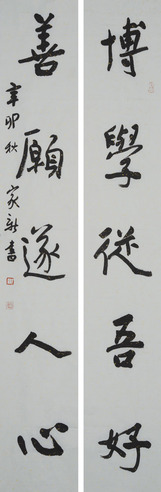 博學從吾好
善願遂人心
辛卯秋
家新書